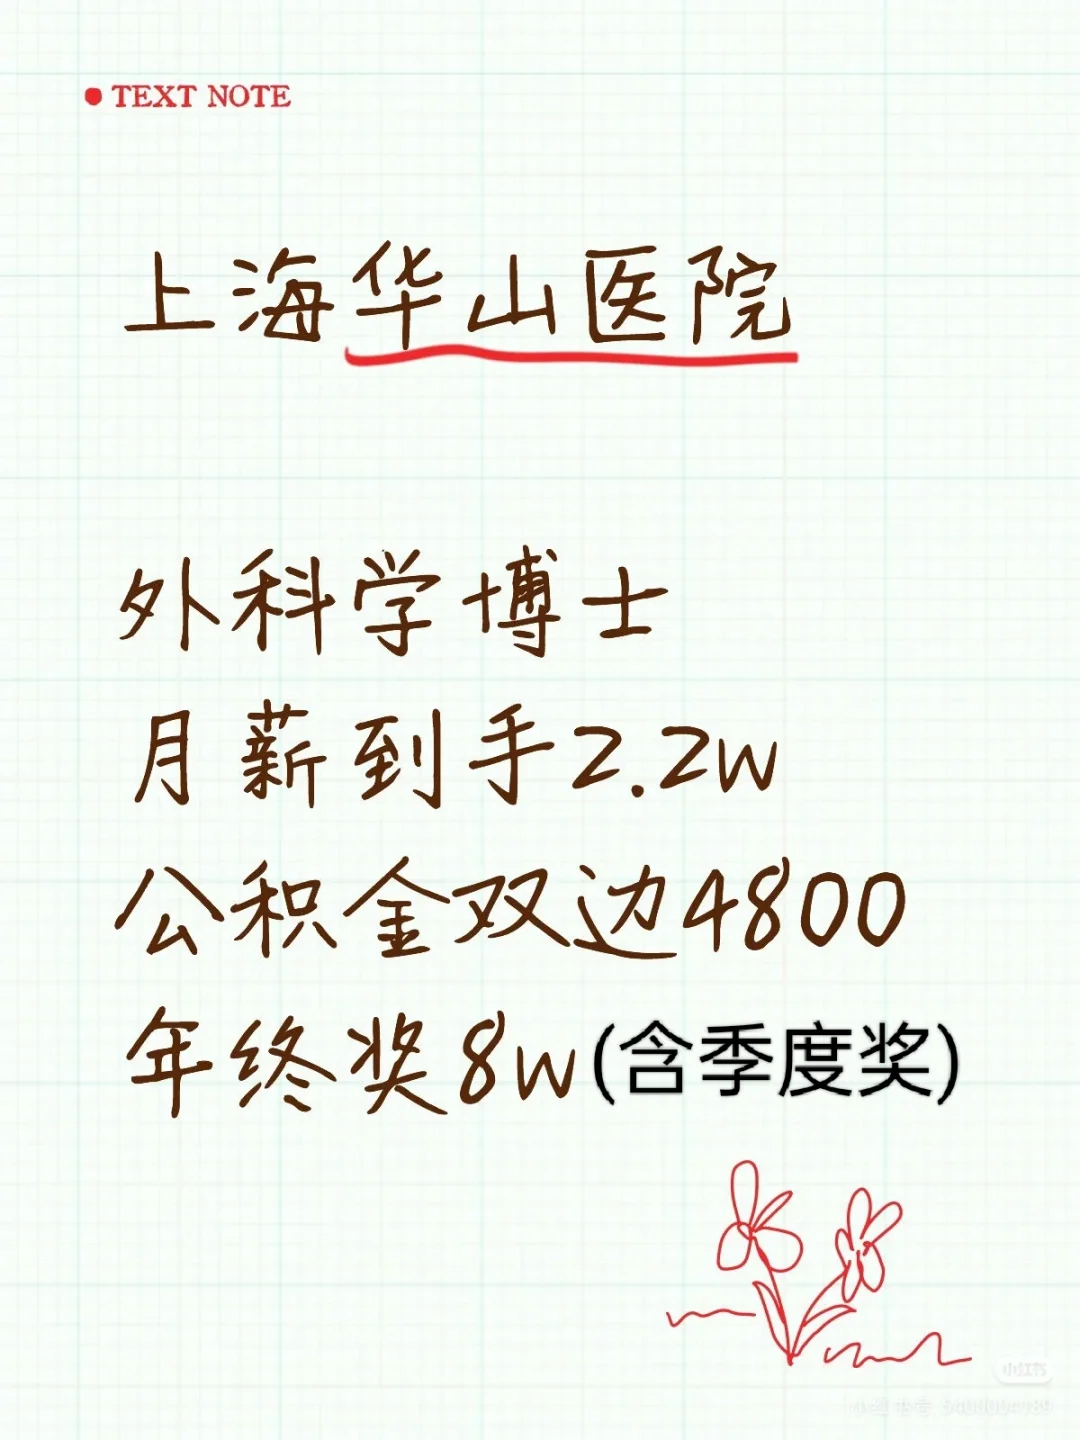 TEXT NOTE
上海华山医院
外科学博士
月薪到手2.2w
公积金双边4800
年终奖8w(含季度奖)
小红书
小红书号